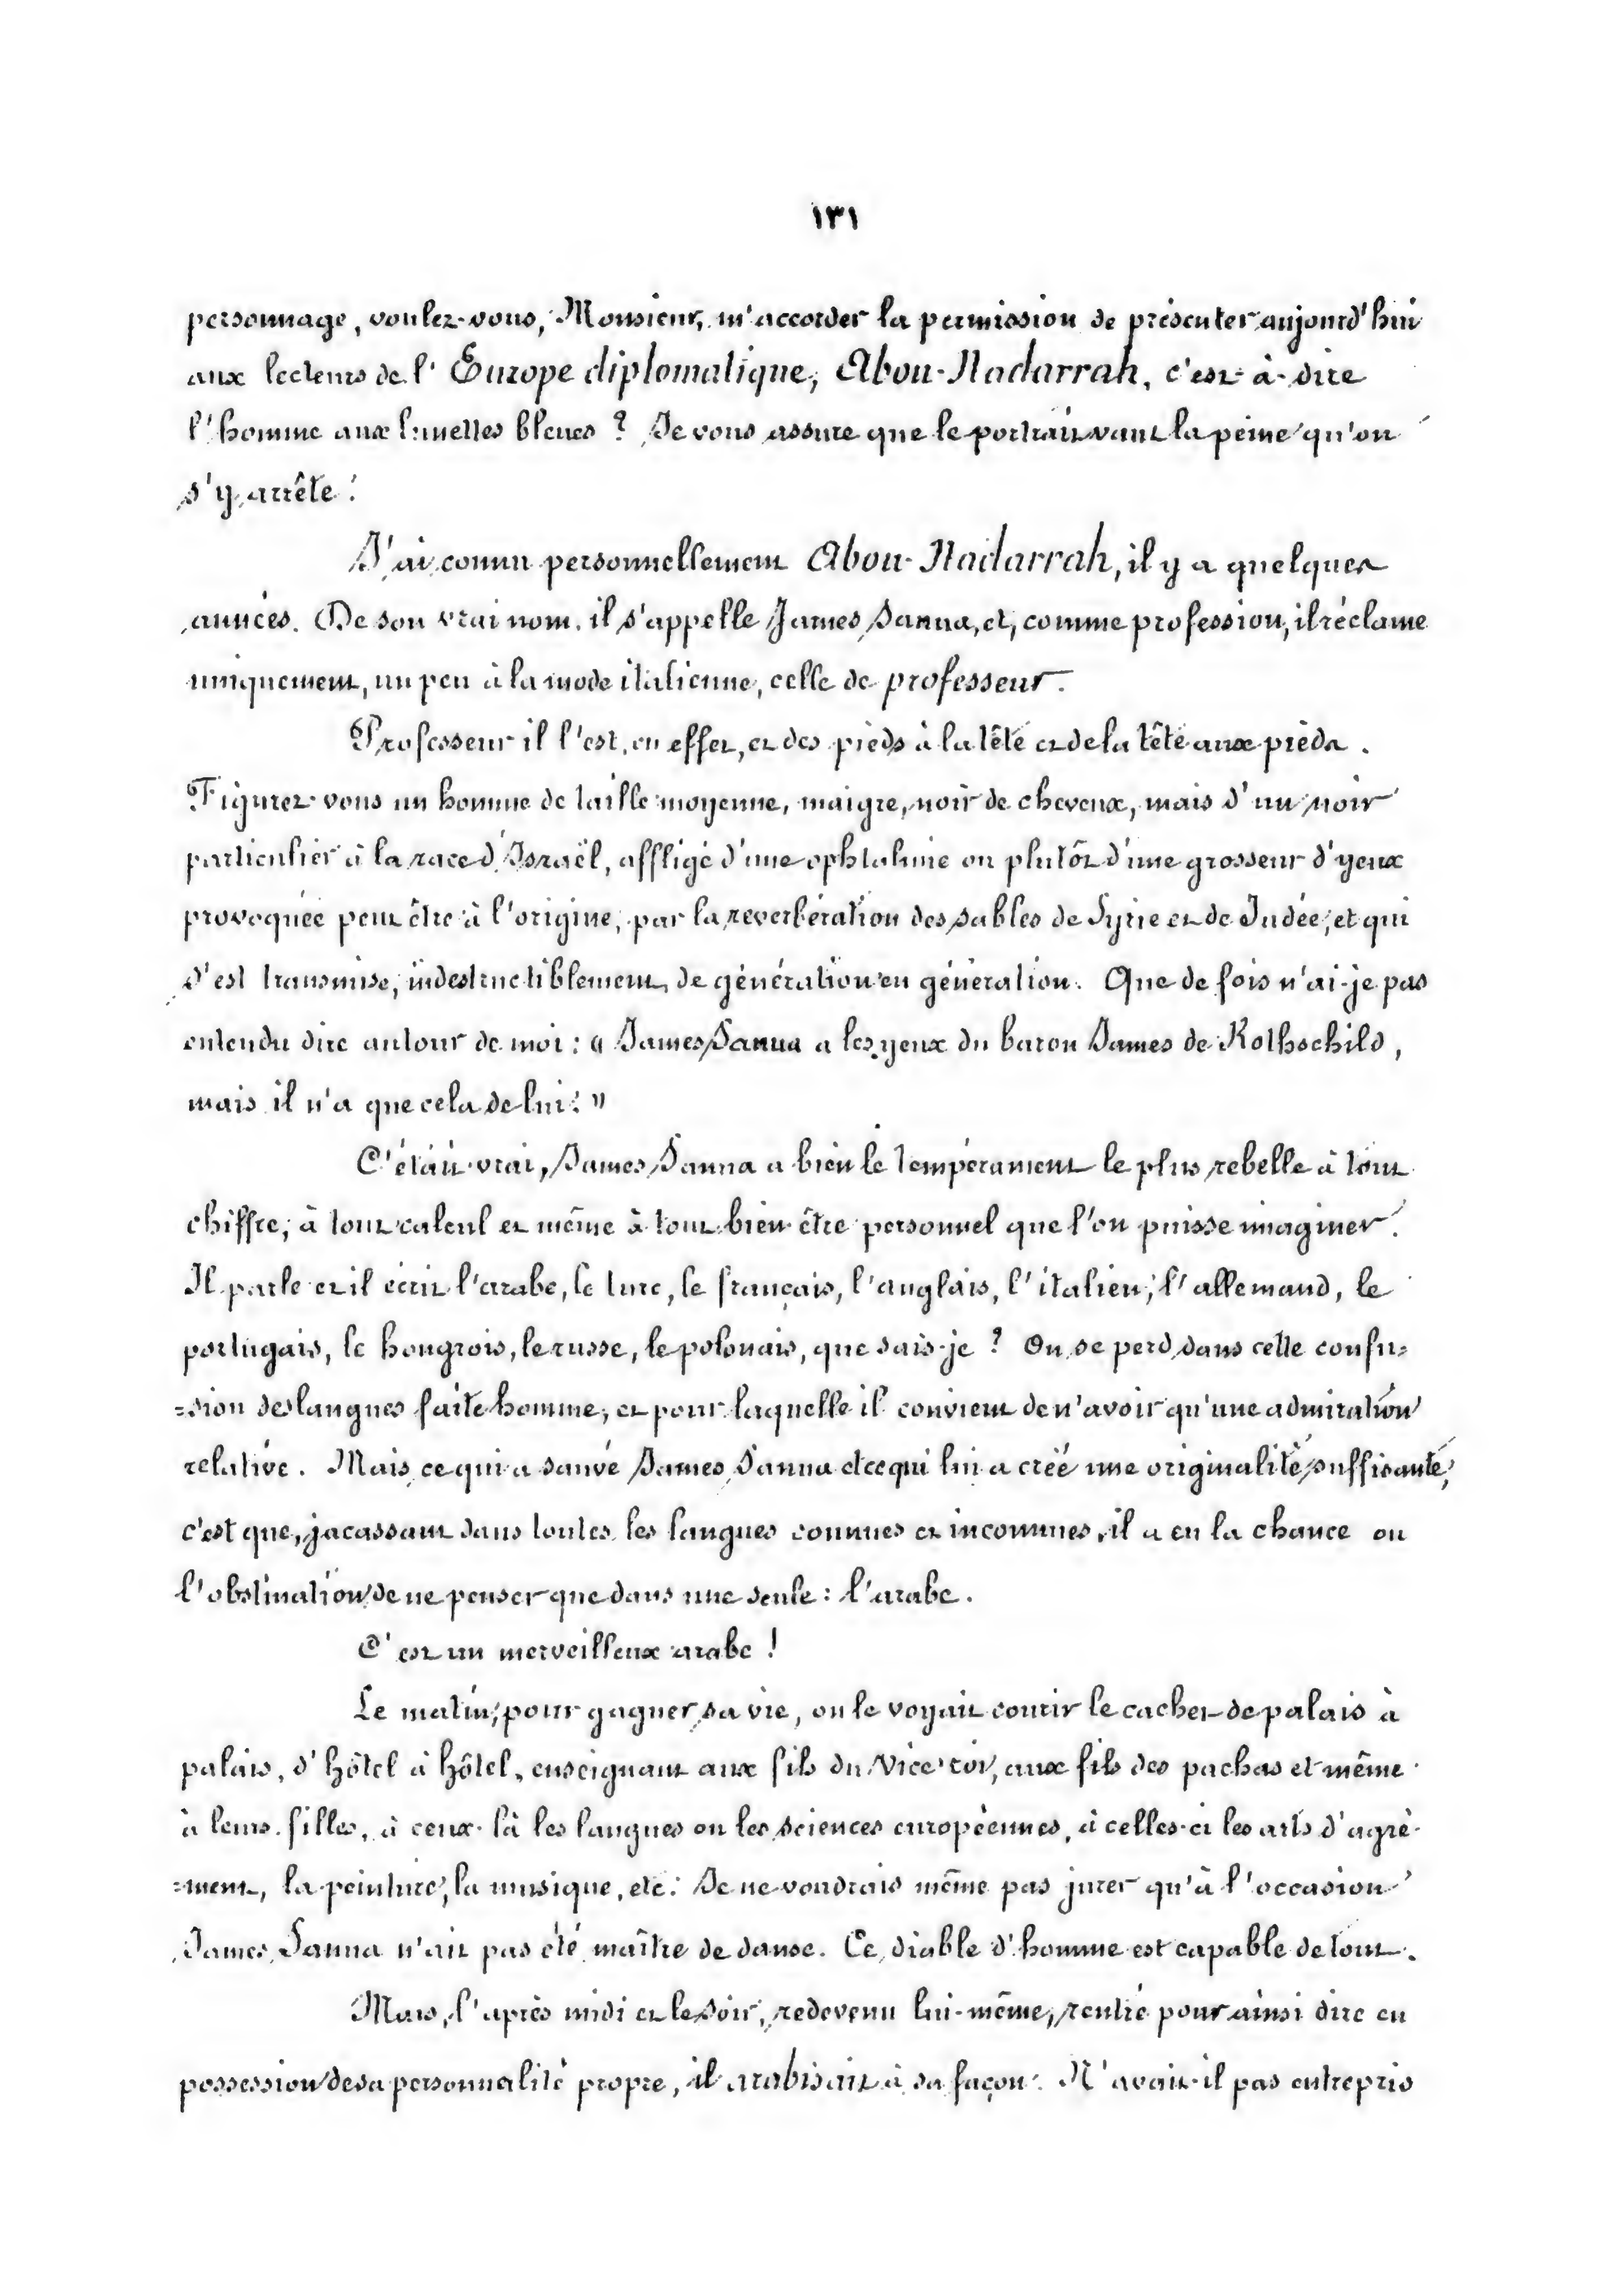 ١٣١
personnage, voulez-vous, Monsieur, m'accorder la permission de présenter aujourd'hui
aux lecteurs de l'Europe diplomatique, Abou-Nadarrah, c'est-à-dire
l'homme aux lunettes bleues ? Je vous assure que le portrait vaut la peine qu'on
s'y arrête !
J'ai connu personnellement Abou-Nadarrah, il y a quelques
années. De son vrai nom, il s'appelle James Sanua, et, comme profession, il réclame
uniquement, un peu à la mode italienne, celle de professeur.
Professeur il l'est, en effet, et des pieds à la tête et de la tête aux pieds.
Figurez-vous un homme de taille moyenne, maigre, noir de cheveux, mais d'un noir
particulier à la race d'Israël, affligé d'une ophtalmie ou plutôt d'une grosseur d'yeux
provoquée peut être à l'origine, par la reverbération des sables de Syrie et de Judée, et qui
s'est transmise, indestructiblement, de génération en génération. Que de fois n'ai-je pas
entendu dire autour de moi : « James Sanua a les yeux du baron James de Rothschild,
mais il n'a que cela de lui ! »
C'était vrai, James Sanua a bien le tempérament le plus rebelle à tout
chiffre, à tout calcul et même à tout bien-être personnel que l'on puisse imaginer !
Il parle et il écrit l'arabe, le turc, le français, l'anglais, l'italien, l'allemand, le
portugais, le hongrois, le russe, le polonais, que sais-je ? On se perd dans cette confu=
=sion des langues faite homme, et pour laquelle il convient de n'avoir qu'une admiration
relative. Mais ce qui a sauvé James Sanua et ce qui lui a créé une originalité suffisante,
c'est que, jacassant dans toutes les langues connues et inconnues, il a eu la chance ou
l'obstination de ne penser que dans une seule : l'arabe.
C'est un merveilleux arabe !
Le matin, pour gagner sa vie, on le voyait courir le cachet de palais à
palais, d'hôtel à hôtel, enseignant aux fils du Vice-roi, aux fils des pachas et même
à leurs filles, à ceux-là les langues ou les sciences européennes, à celles-ci les arts d'agré-
=ment, la peinture, la musique, etc. Je ne voudrais même pas jurer qu'à l'occasion
James Sanua n'ait pas été maître de danse. Ce diable d'homme est capable de tout.
Mais, l'après midi et le soir, redevenu lui-même, rentré pour ainsi dire en
possession de sa personnalité propre, il arabisait à sa façon. N'avait-il pas entrepris